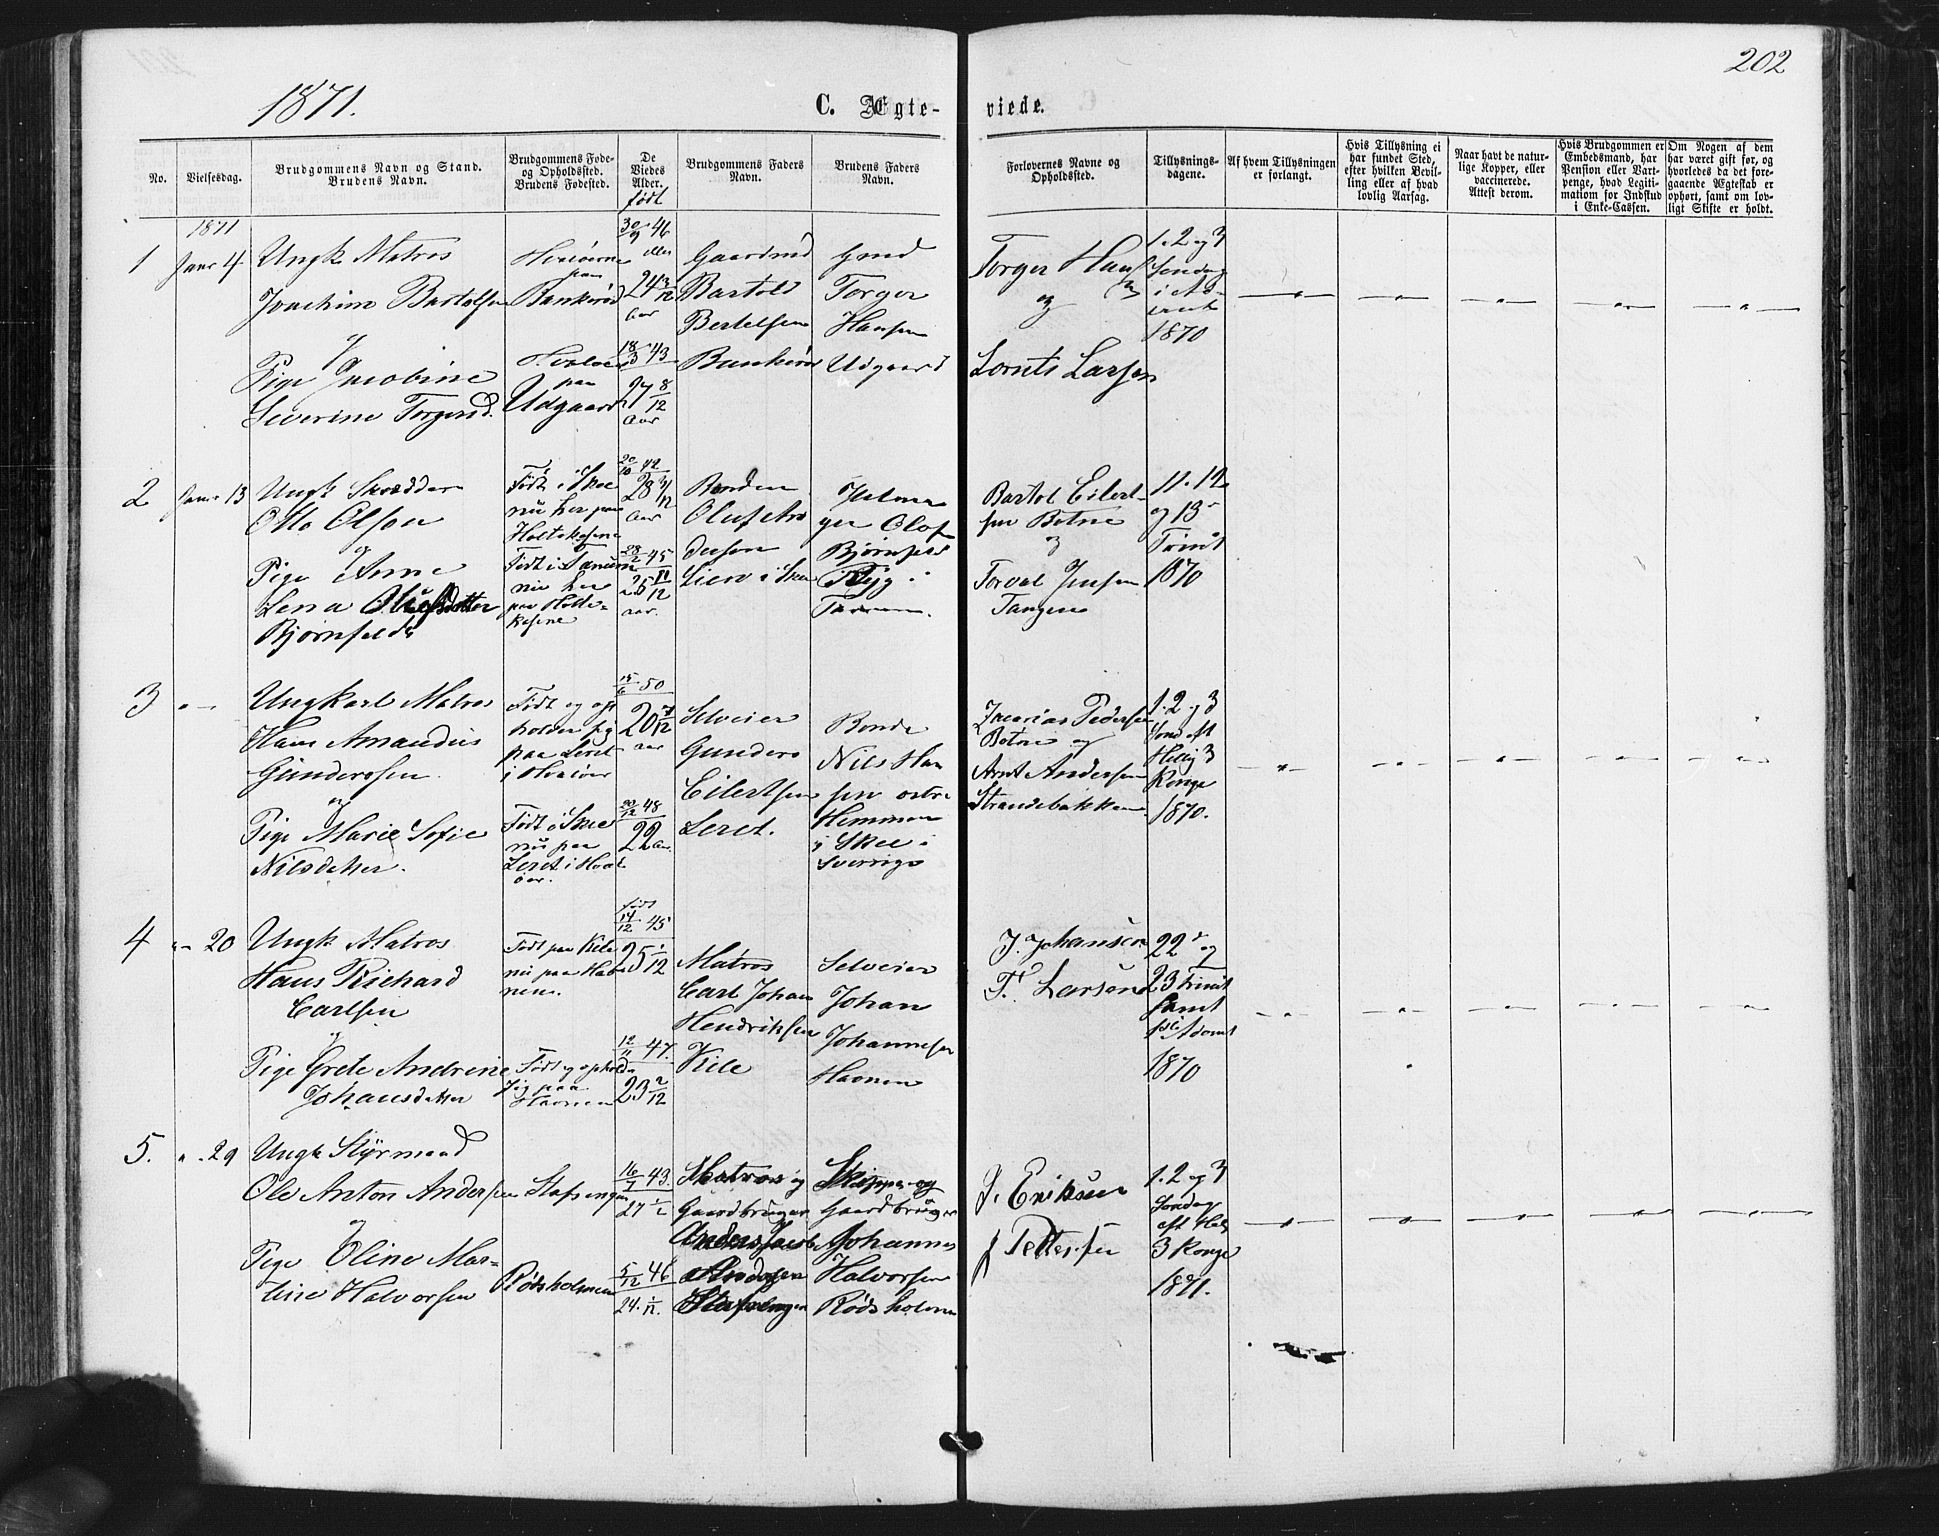 202
1871.
C. Ægte-
viede.
No.
Vielsesdag.
Brudgommens Navn og Stand.
Brudens Navn.
Brudgommens Føde-
og Opholdssted.
Brudens Fødested.
De
Viedes
Alder.
født
Brudgommens Faders
Navn.
Brudens Faders
Navn.
Forlovernes Navne og
Opholdssted.
Tillysnings-
dagene.
Af hvem Tillysningen
er forlangt.
Hvis Tillysning ei
har fundet Sted,
efter hvilken Bevil-
ling eller af hvad
lovlig Aarsag.
Naar havt de natur-
lige Kopper, eller
vaccinerede.
Attest derom.
Hvis Brudgommen er
Embedsmand, har
Pension eller Vart-
penge, hvad Legiti-
mation for Indskud
i Enke-Cassen.
Om Nogen af dem
har været gift før, og
hvorledes da det fore-
gaaende Ægteskab er
ophørt, samt om lov-
ligt Skifte er holdt.
1871
1
Janr 4
Ungk. Matros
Joachim Bartolsen
og
Pige Jacobine
Severine Torgersd.
Hvaløerne
paa
Bankerød
paa
Udgaard
30/9 46
eller
24 3/12
aar
18/3 43
27 8/12
aar
Gaardmd
Bartold
Bertelsen
Bankerød
Gmd
Torger
Hansen
Udgaard
Torger Hans
og
Lornts Larsen
1. 2 og 3
Søndag
i Ad-
vent
1870
2
Janr 13
Ungk Skrædder
Otto Olsen
og
Pige Anne
Lena Olufsdatter
Bjørnfeldt
Født i Skee
nu her paa
Holtekasene
Født i Tanum
nu her
paa Holte-
kasene
20/10 42
28
aar
28/2 45
25 11/12
aar.
Bonden
Oluf An
dersen
Lien i Skee
Olof
Bjørnfeld
Ryg i
Tanum.
Bartol Eilert-
sen Botne
og
Torval Jensen
Tangen
11. 12
og 13
Trinit
1870
3
Ungkarl Matros
Hans Amandus
Gunderssen
og
Pige Marie Sofie
Nilsdatter.
Født og op
holder sig
paa Leret
i Hvaløer
Født i Skee
nu paa
Leret i Hval
øer.
15/6 50
20 7/12
aar
20/12 48
22 aar
Selveier
Gunders
Eilertsen
Leret.
Bonde
Nils Han
sen østre
Hemmen
i Skee i
Sverrige
Zacarias Pedersen
Botne og
Arnt Andersen
Strandebakken
1. 2 og 3
Sond eft
Hellig 3
Konge
1870.
4
20
Ungk Matros
Hans Richard
Carlsen
og
Pige Grete Andrine
Johansdatter
Født paa Kile
nu paa Hav
nen.
Født og ophold
sig paa
Havnen
født
14/12 45
25 1/12
12/11 47.
23 2/12
Matros
Carl Johan
Hendriksen
Kile
Selveier
Johan
Johannesen
Havnen
J. Johansen
F. Larsen
22 og
23 Trinit
samt
1ste Advent
1870
5.
29
Ungk Styrmand
Ole Anton Andersen
og
Pige Oline Mar-
tine Halvorsen
Stafsengen
Rødsholmen
16/7 43.
27 1/2
5/12 46
24. 1/12.
Matros og
Gaardbruger
Anders Jacob
Andersen
Stafsengen
Skipper og
Gaardbruger
Johannes
Halvorsen
Rødsholmen
J. Eriksen
J Pettersen
1. 2 og 3
Søndag
eft Hellig
3 Konge
1871.